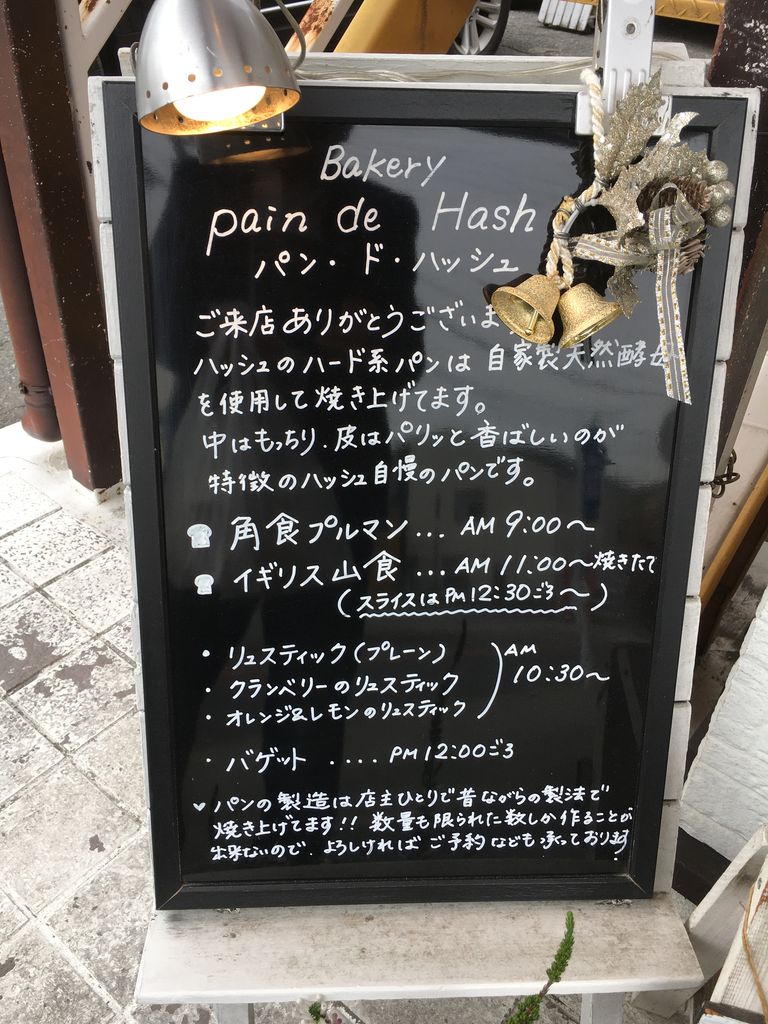 Bakery
pain de Hash
パン・ド・ハッシュ
ご来店ありがとうございま
ハッシュのハード系パンは 自家製天然酵母
を使用して焼き上げてます。
中はもっちり、皮はパリッと香ばしいのが
特徴のハッシュ自慢のパンです。
角食プルマン... AM 9:00〜
イギリス山食 ... AM 11:00〜焼きたて
(スライスはPM12:30ごろ〜)
・リュスティック(プレーン)
・クランベリーのリュスティック
・オレンジ&レモンのリュスティック
AM
10:30〜
・バゲット .... PM12:00ごろ
♥ パンの製造は店主ひとりで昔ながらの製法で
焼き上げてます!! 数量も限られた数しか作ることが
出来ないので、よろしければ ご予約なども承っております